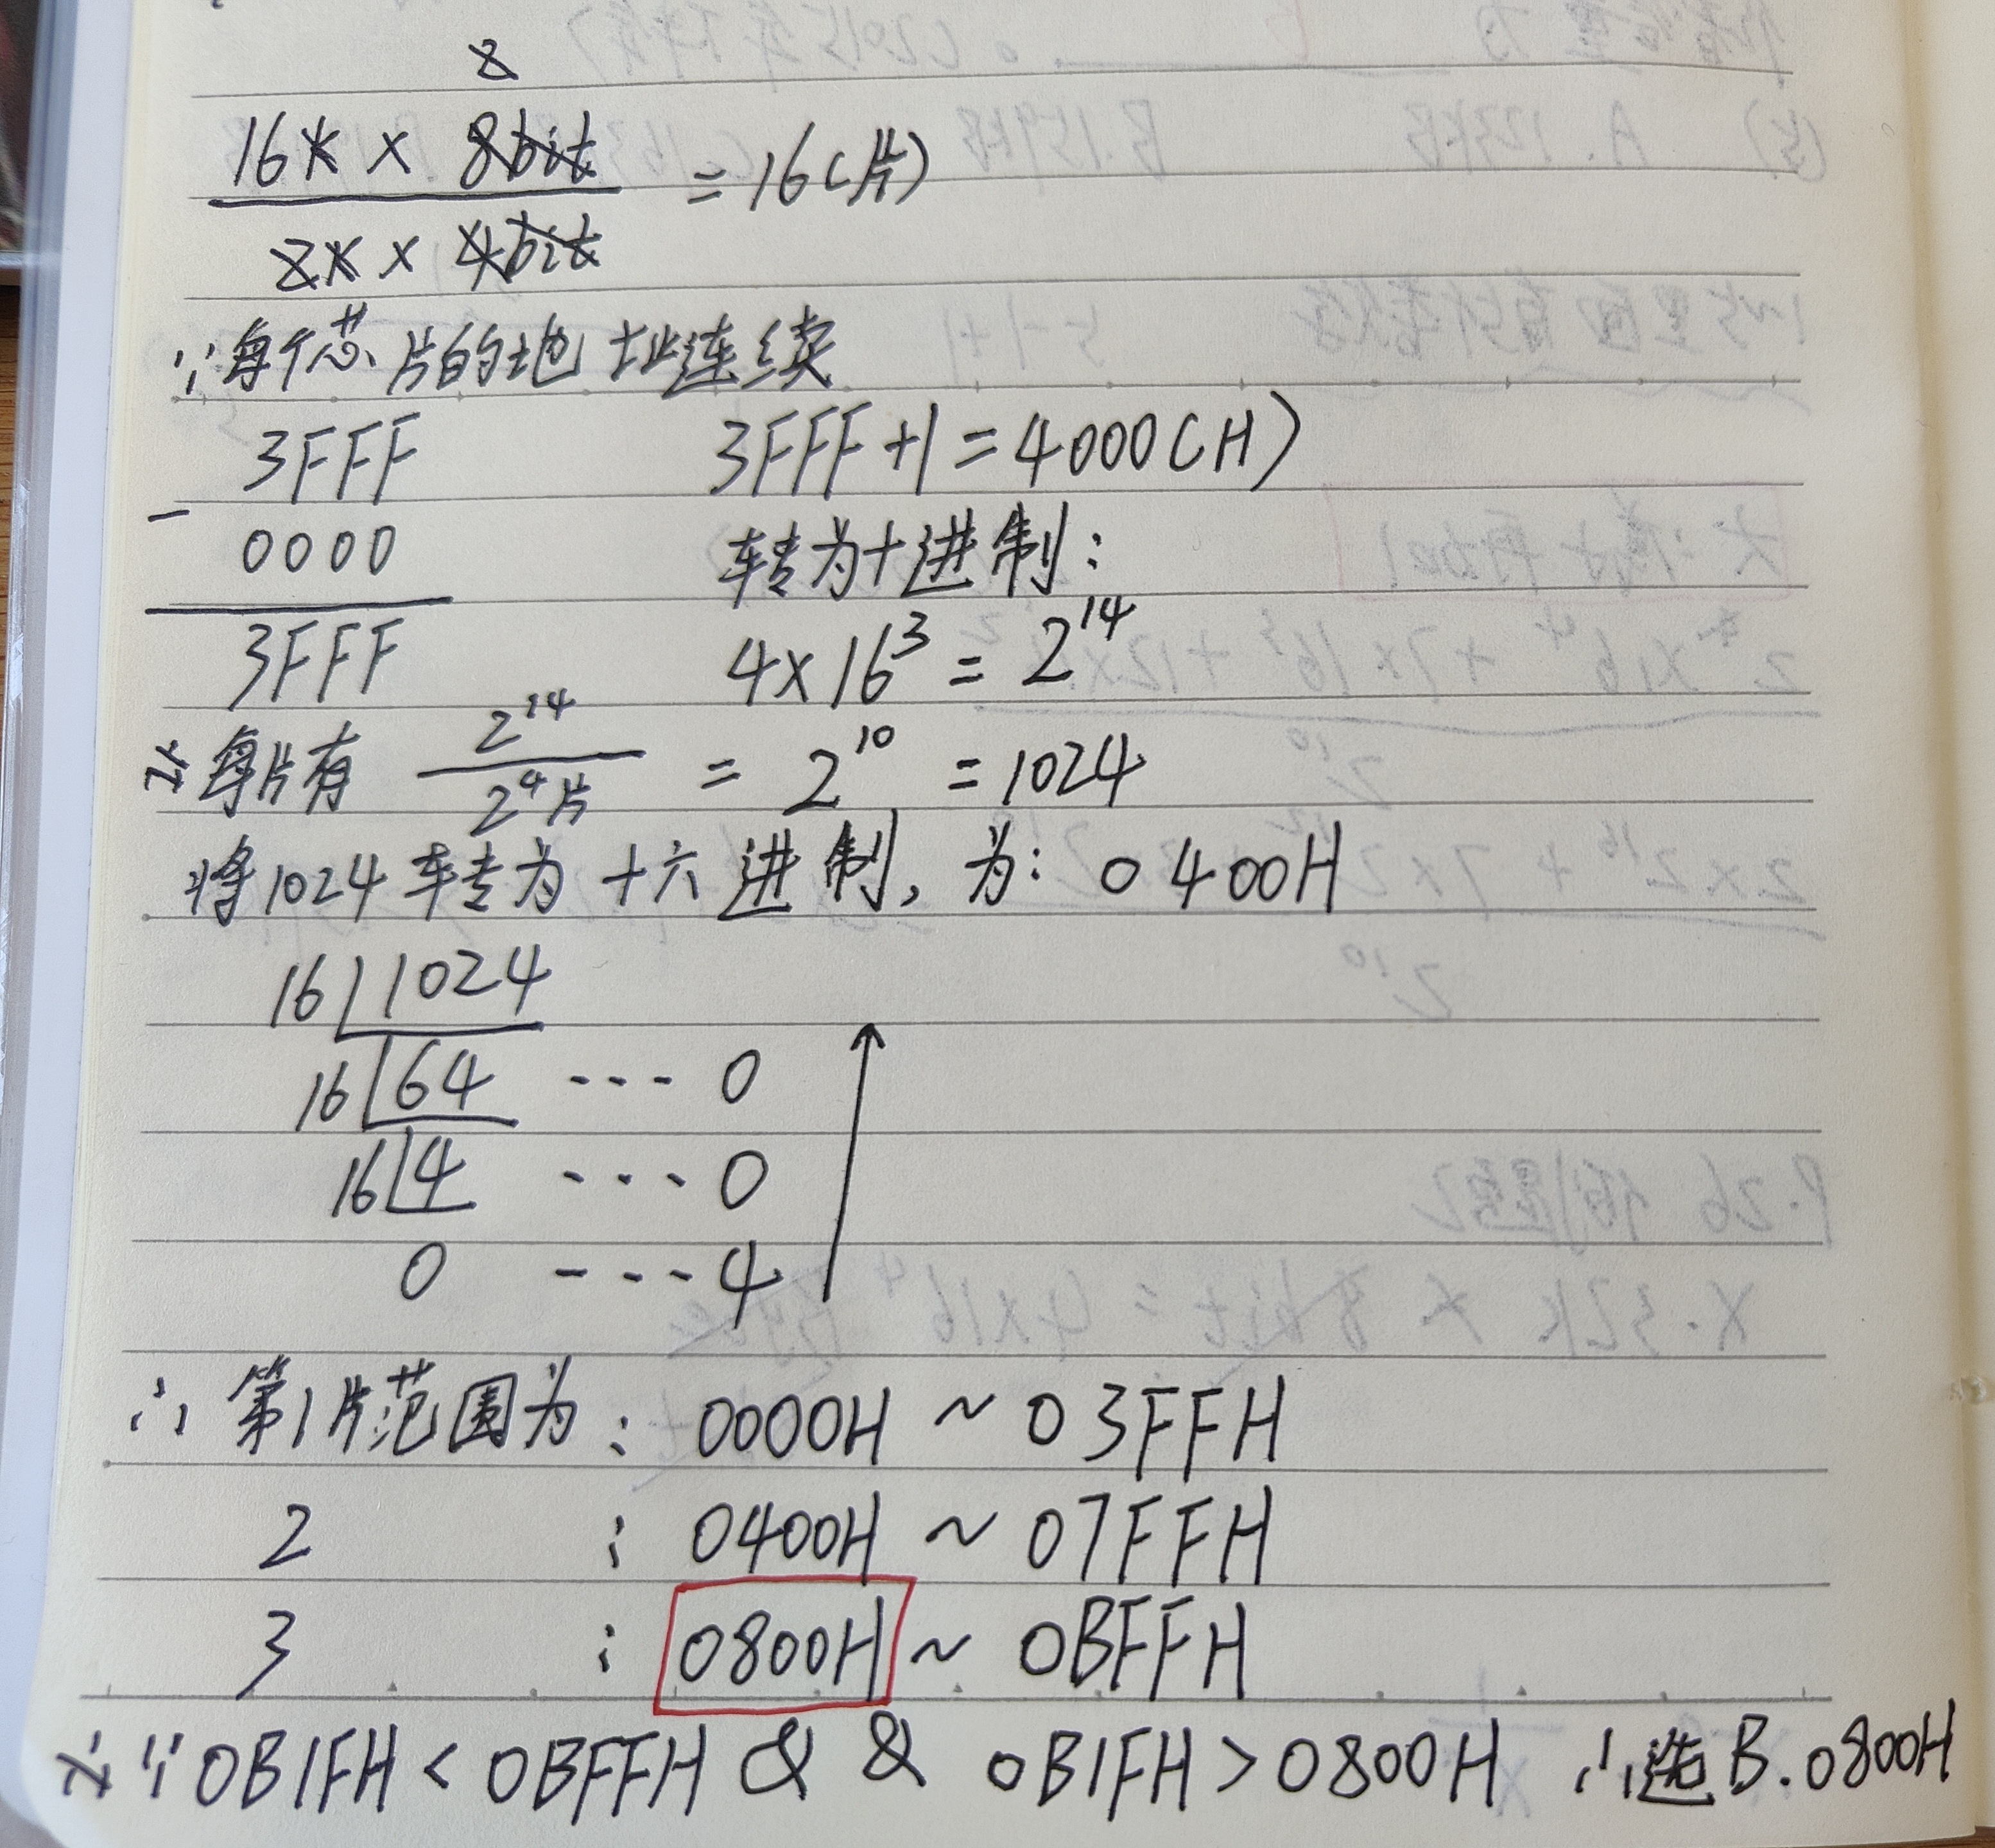 2
16K × 8bit
= 16(片)
2K × 4bit
∵每个芯片的地址连续
3FFF 3FFF+1=4000(H)
- 0000 转为十进制:
3FFF 4×16³ = 2¹⁴
又每片有 2¹⁴ / 2⁴片 = 2¹⁰ = 1024
将1024转为十六进制, 为: 0400H
16 1024
16 64 --- 0
16 4 --- 0
0 --- 4
∴ 第1片范围为: 0000H ~ 03FFH
2 : 0400H ~ 07FFH
3 : 0800H ~ 0BFFH
又∵0B1FH < 0BFFH && 0B1FH > 0800H ∴选B.0800H